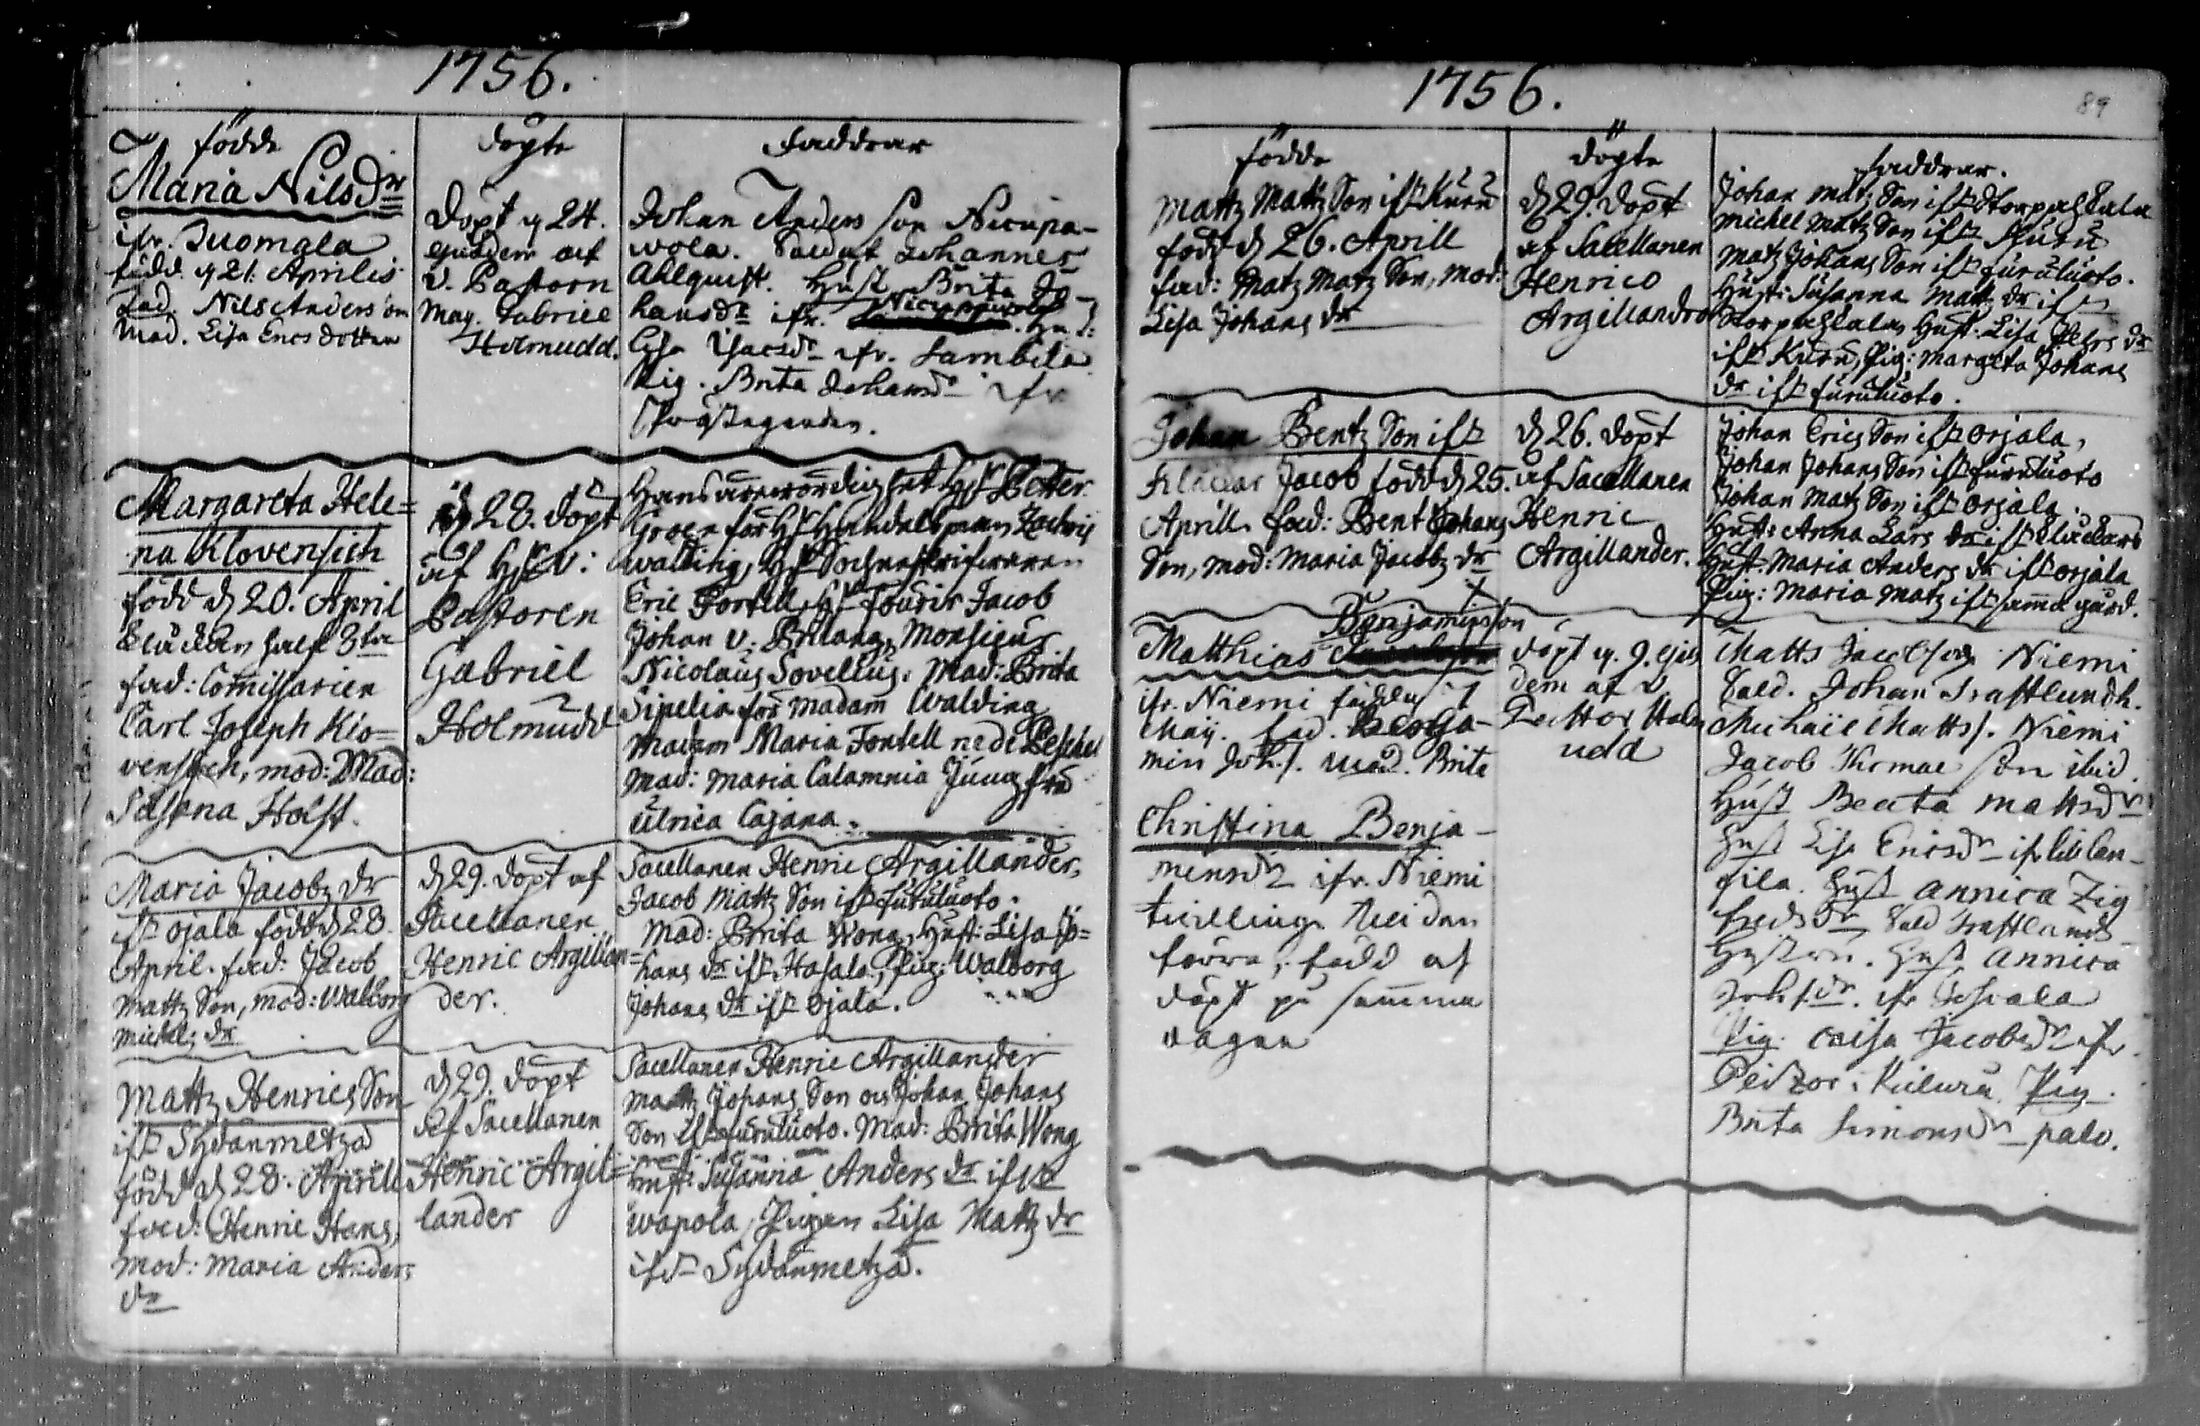 1756.
födde
döpte
Faddrar
Maria Nilsdr
ifr. Tuomala
född d 21. Aprilis
Fad. Nils Andersson
Mod. Lisa Ericsdotter
Döpt d 24.
ejusdem af
v. Pastorn
Mag. Gabriel
Holmudd.
Johan Andersson Nicupa-
wola. Soldat Johannes
Ahlquist. Hust. Brita Jo-
hansdr ifr. Nicupawola. Hust:
Lisa Isacsdr ifr. Lambila
Pig. Brita Johansdr ifr
Prostegården.
Margareta Hele=
na Klovensich
född d 20. April
Klåckan half 8ta
fad: Commissarien
Carl Joseph Klo=
vensich, mod: Mad:
Susana Holst.
d 28. döpt
af HE v:
Pastoren
Gabriel
Holmudd
Hans ärewördighet HE Petter
Walding, HE Sochneskrifwaren
Eric Fortell, HE Fourir Jacob
Johan v: Brilang, Monsieur
Nicolaus Sovellius. Mad: Brita
Sipelia för Madam Walding
Madam Maria Fortell
Mad: Maria Calamnia Jungfru
Ulrica Cajana.
Maria Jacobz dr
ifr Ojala född d 28
April. fad: Jacob
Mattz Son, mod: Walborg
Michelz dr
d 29. döpt af
Sacellanen
Henric Argillan=
der.
Sacellanen Henric Argillander,
Jacob Mattz Son ifr Furuluoto.
Mad: Brita Wong, Hust: Lisa Jo=
hans dr ifr Hasala, Pig: Walborg
Johans dr ifr Ojala.
Mattz Henrics Son
ifr Sydänmetzä
född d 28. Aprill
fad: Henric Hans,
mod: Maria Anders
dr
d 29. döpt
af Sacellanen
Henric Argil=
lander
Sacellanen Henric Argillander
Mattz Johans Son och Johan Johans
Son ifr Furuluoto. Mad: Brita Wong
Hust: Susanna Anders dr ifr
Wapola, Pigan Lisa Mattz dr
ifr Sydänmetzä.
1756.
89
födde
döpte
Faddrar.
Mattz Mattz Son ifr Kuru
född d 26. Aprill
fad: Matz Matz Son, mod:
Lisa Johans dr
d 29. döpt
af Sacellanen
Henrico
Argillandro
Johan Matz Son ifr Storpaskala
Michel Matz Son ifr Kuru
Matz Johans Son ifr Furuluoto.
Hust: Susanna Matz dr ifr
Storpaskala, Hust. Lisa Pehrs dr
ifr Kuru, Pig: Margeta Johans
dr ifr Furuluoto.
Johan Bentz Son ifr
Klåckar Jacob född d 25.
Aprill. fad: Bent Johans
Son, mod: Maria Jacobz dr
d 26. döpt
af Sacellanen
Henric
Argillander.
Johan Erics Son ifr Orjala,
Johan Johans Son ifr Furuluoto
Johan Matz Son ifr Orjala.
Hust: Anna Lars dr ifr Klåckars
Hust: Maria Anders dr ifr Orjala
Pig: Maria Matz ifr samma gård.
Benjaminsson
Matthias
ifr. Niemi födder d 7
Maij. fad. Benja-
min Joh.s. Mod. Brita
döpt d. 9. ejus
dem af v.
Pastor Holm
udd
Matts Jacobsson Niemi
Sold. Johan Kraftlundh.
Michaël Matts s. Niemi
Jacob Hermans son ibid.
Hust Beata Mattsdr
Hust Lisa Ericsdr ifr
Hust Annica Zig
fredsdr Sold Kraftlunds
Hustru. Hust Annica
Joh.s.dr. ifr
Pig. Caisa Jacobsdr ifr.
Pig.
Brita Simonsdr palv.
Christina Benja-
minsdr ifr. Niemi
twilling till den
förra, född och
döpt på samma
dagar